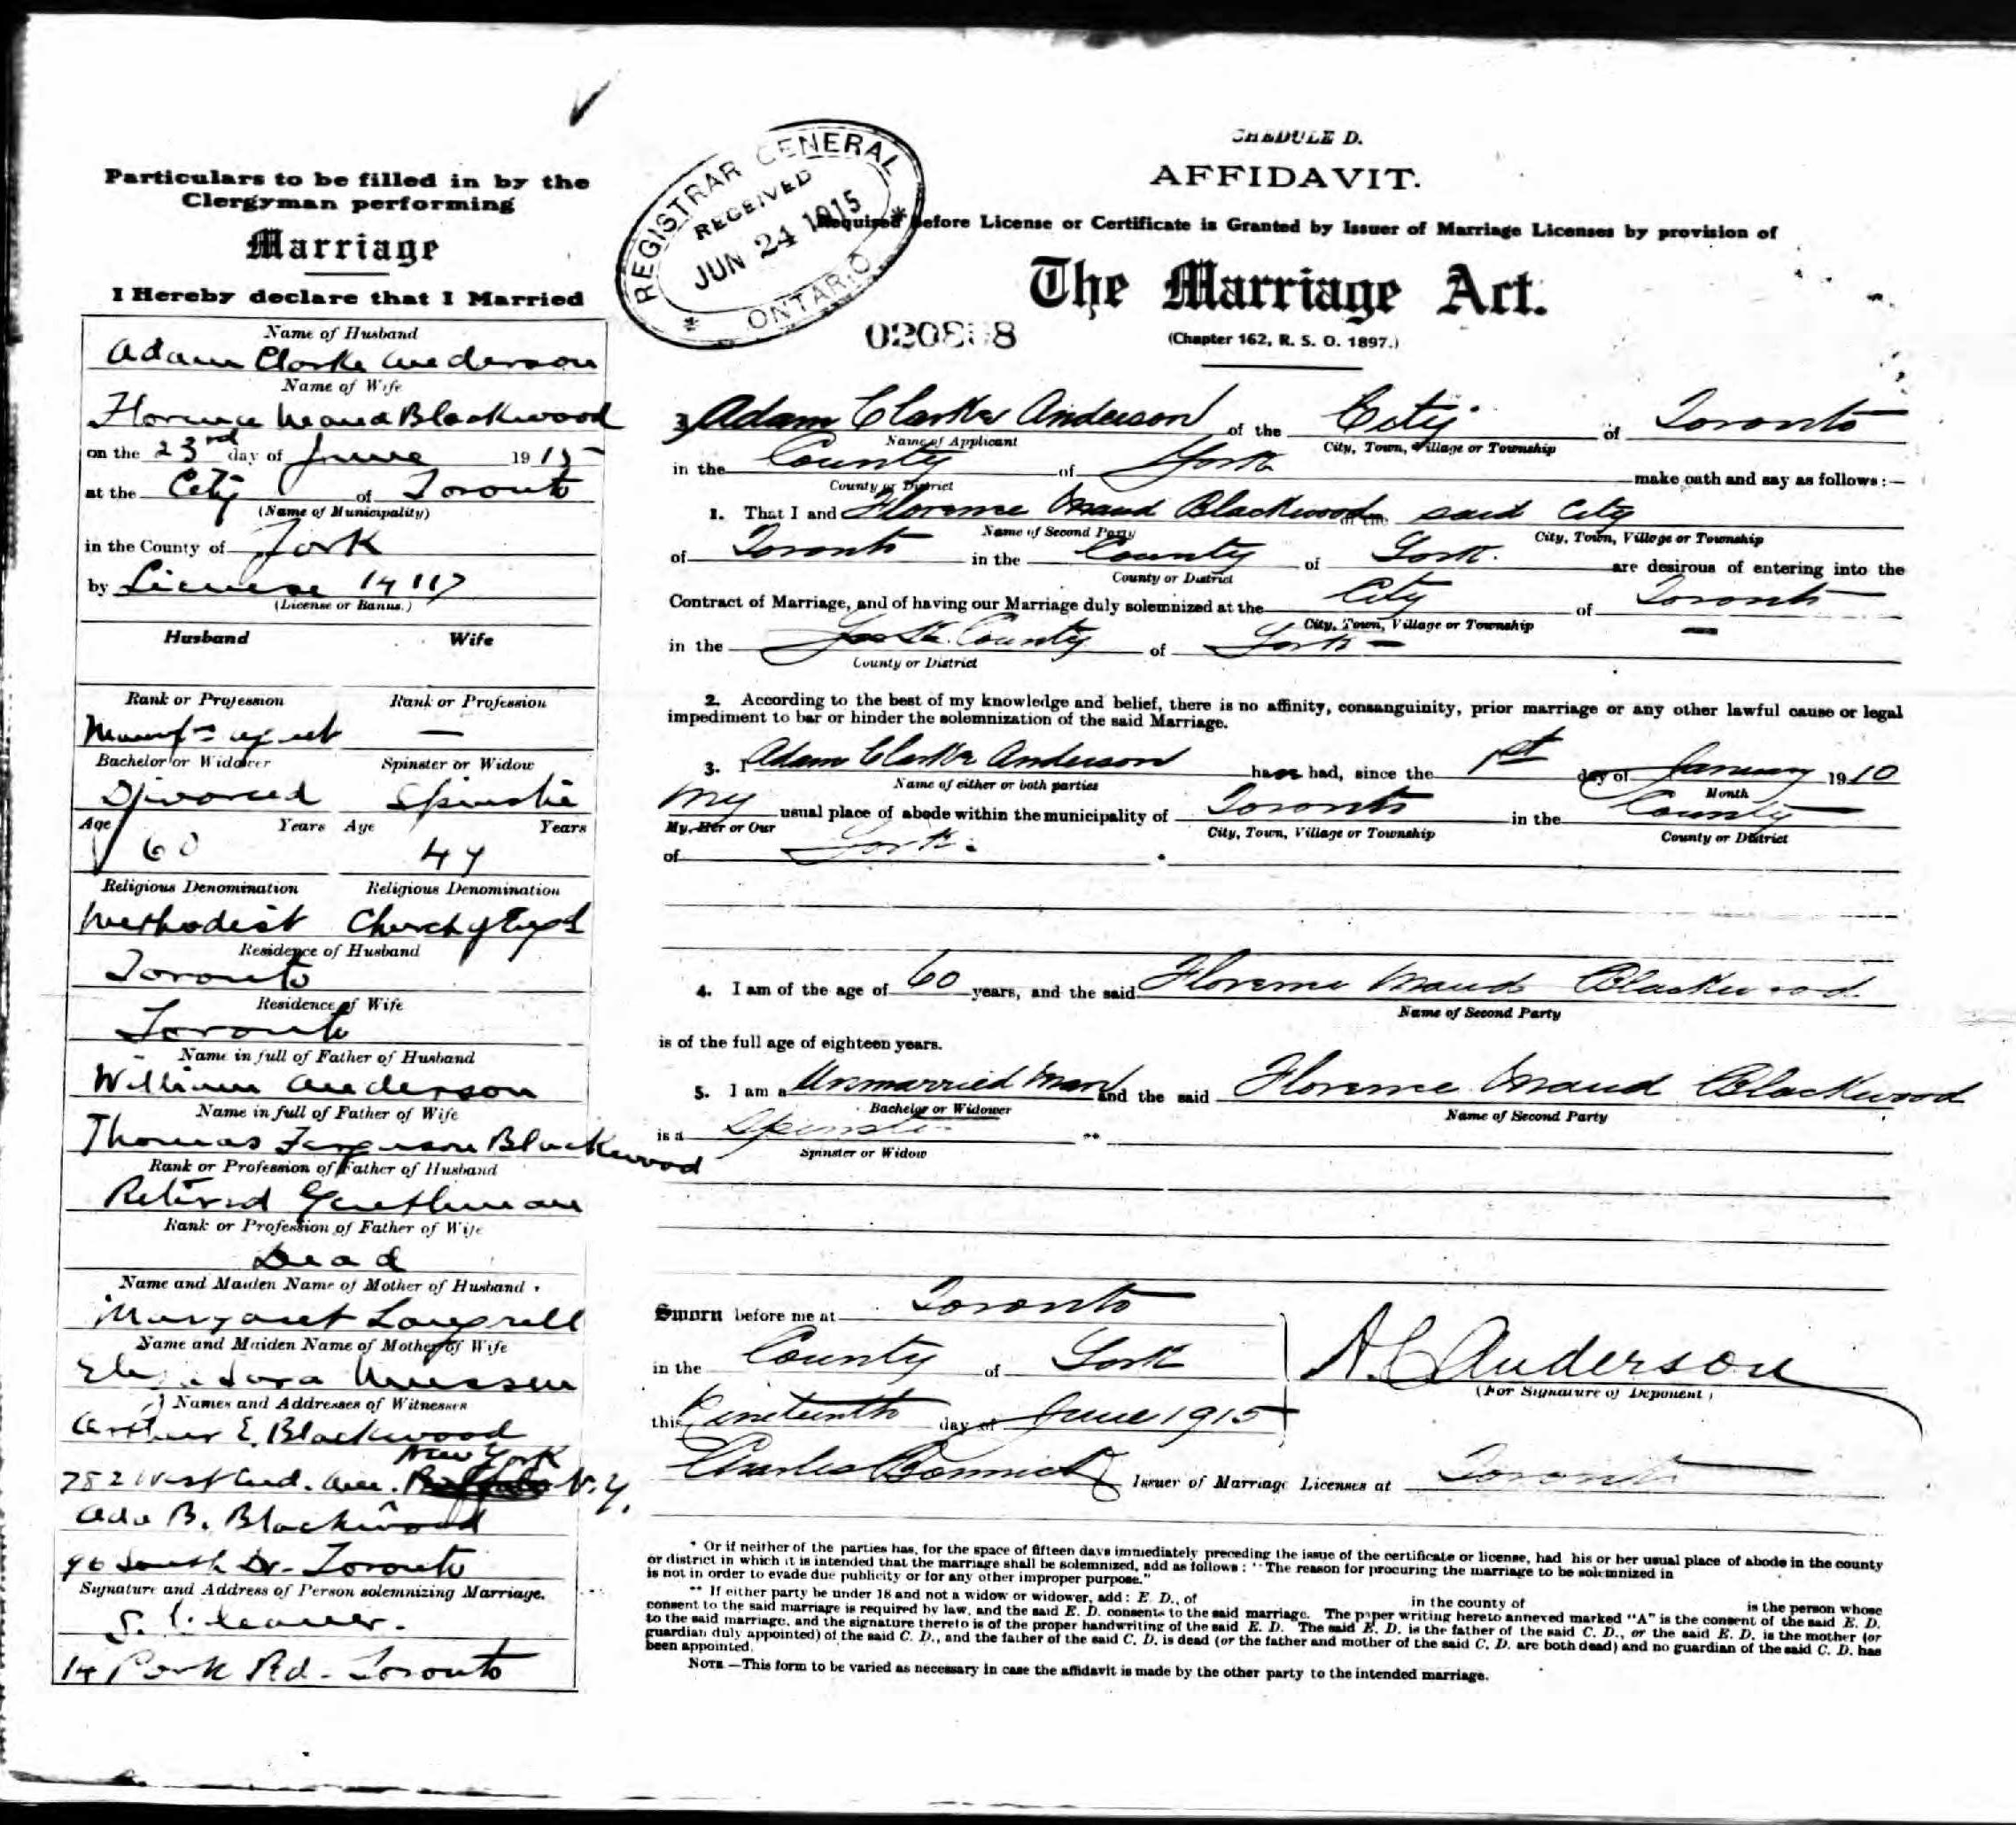 Particulars to be filled in by the
Clergyman performing
Marriage
I Hereby declare that I Married
Name of Husband
Adam Clarke Anderson
Name of Wife
Florence Maud Blackwood
on the 23rd day of June 1915
at the City of Toronto
(Name of Municipality)
in the County of York
by License 14117
(License or Banns.)
Husband Wife
Rank or Profession Rank or Profession
Manuf= agent —
Bachelor or Widower Spinster or Widow
Divorced Spinster
Age Years Age Years
60
Religious Denomination Religious Denomination
Methodist Church of Engl
Residence of Husband
Toronto
Residence of Wife
Toronto
Name in full of Father of Husband
William Anderson
Name in full of Father of Wife
Thomas Ferguson Blackwood
Rank or Profession of Father of Husband
Retired Gentleman
Rank or Profession of Father of Wife
Dead
Name and Maiden Name of Mother of Husband
Margaret Langrell
Name and Maiden Name of Mother of Wife
Mussen
Names and Addresses of Witnesses
Arthur E. Blackwood
New York
782 West End. Ave. N.Y.
Ada B. Blackwood
96 South Dr. Toronto
Signature and Address of Person solemnizing Marriage.
14 Park Rd - Toronto
REGISTRAR GENERAL
RECEIVED
JUN 24 1915
ONTARIO
SCHEDULE D.
AFFIDAVIT.
Required before License or Certificate is Granted by Issuer of Marriage Licenses by provision of
The Marriage Act.
(Chapter 162, R. S. O. 1897.)
I, Adam Clarke Anderson of the City of Toronto
Name of Applicant City, Town, Village or Township
in the County of York make oath and say as follows:—
County or District
1. That I and Florence Maud Blackwood of the said City
Name of Second Party City, Town, Village or Township
of Toronto in the County of York. are desirous of entering into the
County or District
Contract of Marriage, and of having our Marriage duly solemnized at the City of Toronto
City, Town, Village or Township
in the County of York —
County or District
2. According to the best of my knowledge and belief, there is no affinity, consanguinity, prior marriage or any other lawful cause or legal
impediment to bar or hinder the solemnization of the said Marriage.
3. I Adam Clarke Anderson have had, since the 1st day of January 1910
Name of either or both parties Month
my usual place of abode within the municipality of Toronto in the County
My, Her or Our City, Town, Village or Township County or District
of York.
4. I am of the age of 60 years, and the said Florence Maud Blackwood
Name of Second Party
is of the full age of eighteen years.
5. I am a Unmarried Man and the said Florence Maud Blackwood
Bachelor or Widower Name of Second Party
is a Spinster **
Spinster or Widow
Sworn before me at Toronto
in the County of York
A. C. Anderson
(For Signature of Deponent)
this Nineteenth day of June 1915
Charles Bonnick Issuer of Marriage Licenses at Toronto
* Or if neither of the parties has, for the space of fifteen days immediately preceding the issue of the certificate or license, had his or her usual place of abode in the county
or district in which it is intended that the marriage shall be solemnized, add as follows: "The reason for procuring the marriage to be solemnized in
is not in order to evade due publicity or for any other improper purpose."
** If either party be under 18 and not a widow or widower, add: E. D., of in the county of is the person whose
consent to the said marriage is required by law, and the said E. D. consents to the said marriage. The paper writing hereto annexed marked "A" is the consent of the said E. D.
to the said marriage, and the signature thereto is of the proper handwriting of the said E. D. The said E. D. is the father of the said C. D., or the said E. D. is the mother (or
guardian duly appointed) of the said C. D., and the father of the said C. D. is dead (or the father and mother of the said C. D. are both dead) and no guardian of the said C. D. has
been appointed.
NOTE.—This form to be varied as necessary in case the affidavit is made by the other party to the intended marriage.